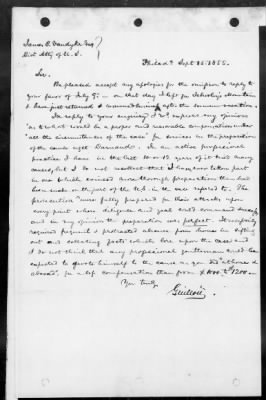 James C. Vandyke Esq
Dist Atty of U.S.
Philada Sept 1855.
Sir.
Be pleased accept my apologies for the omission to reply to
your favor of July 9th — on that day I left for Schooley's Mountain
& have just returned
In reply to your enquiry I express my opinion
as to what would be a proper and reasonable compensation under
"all the circumstances of the case" for services in the preparation
of the cause agst Darnaud. In an active professional
practice I have in the last 10 or 12 years of it tried many
causes, but I do not recollect that I have ever taken part
in one which evinced more thorough preparation than had
been made on the part of the U.S. in the case referred to. The
prosecution was fully prepared for their attacks upon
every point where diligence and zeal could command success
and in my opinion the preparation was perfect. It necessarily
required frequent & protracted absence from home in sifting
out and collecting facts which bore upon the case and
I do not think that any professional gentleman could be
expected to devote himself to the cause as you did "at home &
abroad", for a less compensation than from $1000 to $1200.—
Yrs truly